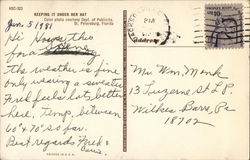 HSC-323
KEEPING IT UNDER HER HAT
Color photo courtesy Dept. of Publicity,
St. Petersburg, Florida
Jan. 5 1981
Hi
for a
the weather is fine
only wearing a sweater
Fred feels lots better
here, Temp. between
60 & 70° so far.
Best regards Fred &
Doris.
PM
Address
Mr. Wm. Monk
13 Luzerne St L.P.
Wilkes Barre, Pa
18702